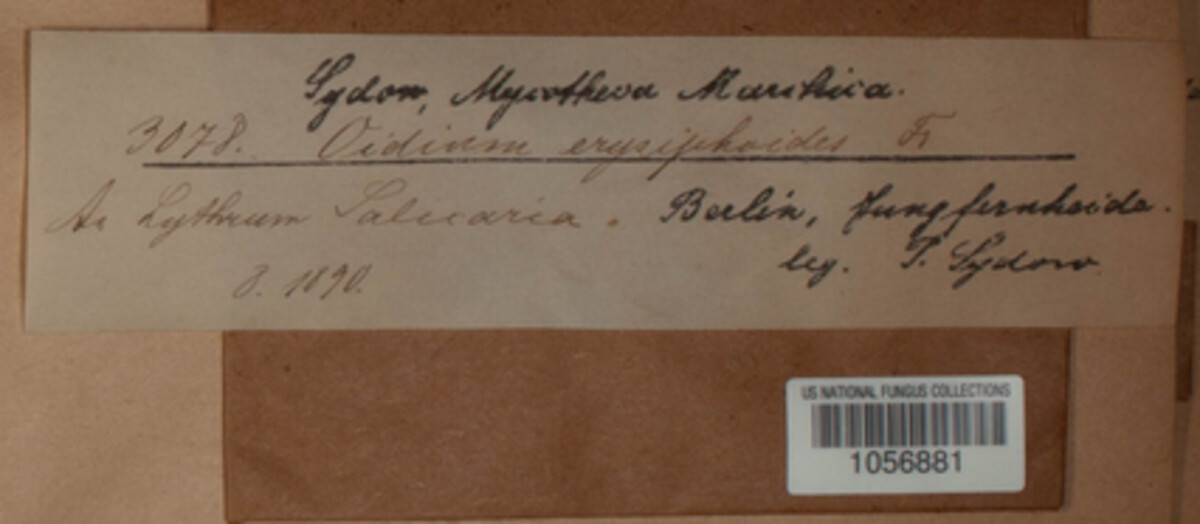 Sydow, Mycotheca Marchica.
3078. Oidium erysiphoides Fr
An Lythrum Salicaria. Berlin, Jungfernheide.
8. 1890. leg. P. Sydow
US NATIONAL FUNGUS COLLECTIONS
1056881